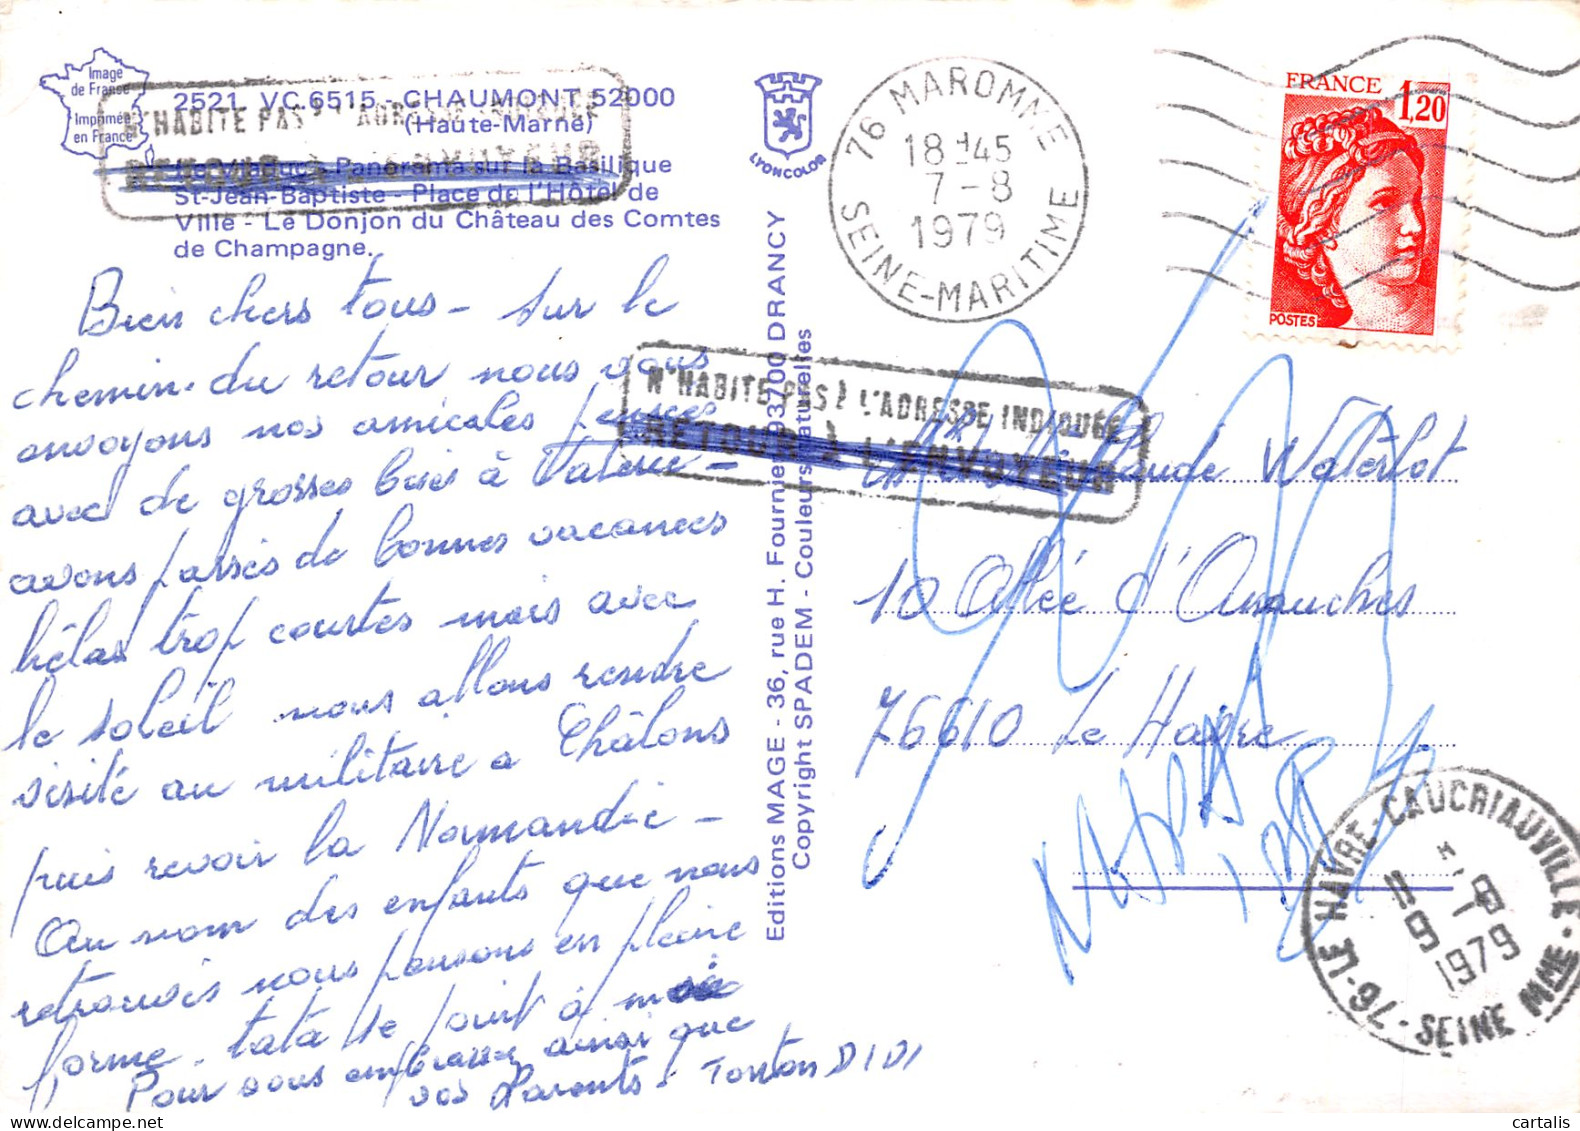 Image
de France
Imprimée
en France
2521 VC 6515 - CHAUMONT 52000
(Haute-Marne)
N'HABITE PAS À L'ADRESSE INDIQUÉE
RETOUR À L'ENVOYEUR
Panorama sur la Basilique
St-Jean-Baptiste - Place de l'Hôtel de
Ville - Le Donjon du Château des Comtes
de Champagne.
LYONCOLOR
76 MAROMME
18-45
7-8
1979
SEINE-MARITIME
FRANCE 1,20
POSTES
Bien chers tous - Sur le
chemin du retour nous vous
envoyons nos amicales pensées
avec de grosses bises à Valérie -
avons passés de bonnes vacances
hélas trop courtes mais avec
le soleil nous allons rendre
visité au militaire a Châlons
puis revoir la Normandie -
Au nom des enfants que nous
retrouvés nous pensons en pleine
forme. tata te
Pour vous embrasser ainsi que
vos Parents - Tonton DIDI
Editions MAGE - 36, rue H. Fournier 93700 DRANCY
Copyright SPADEM - Couleurs naturelles
N'HABITE PAS À L'ADRESSE INDIQUÉE
RETOUR À L'ENVOYEUR
Claude Waterlot
10 Allée d'
76610 Le Havre
76-LE HAVRE-CAUCRIAUVILLE-SEINE MME
1979
cartalis